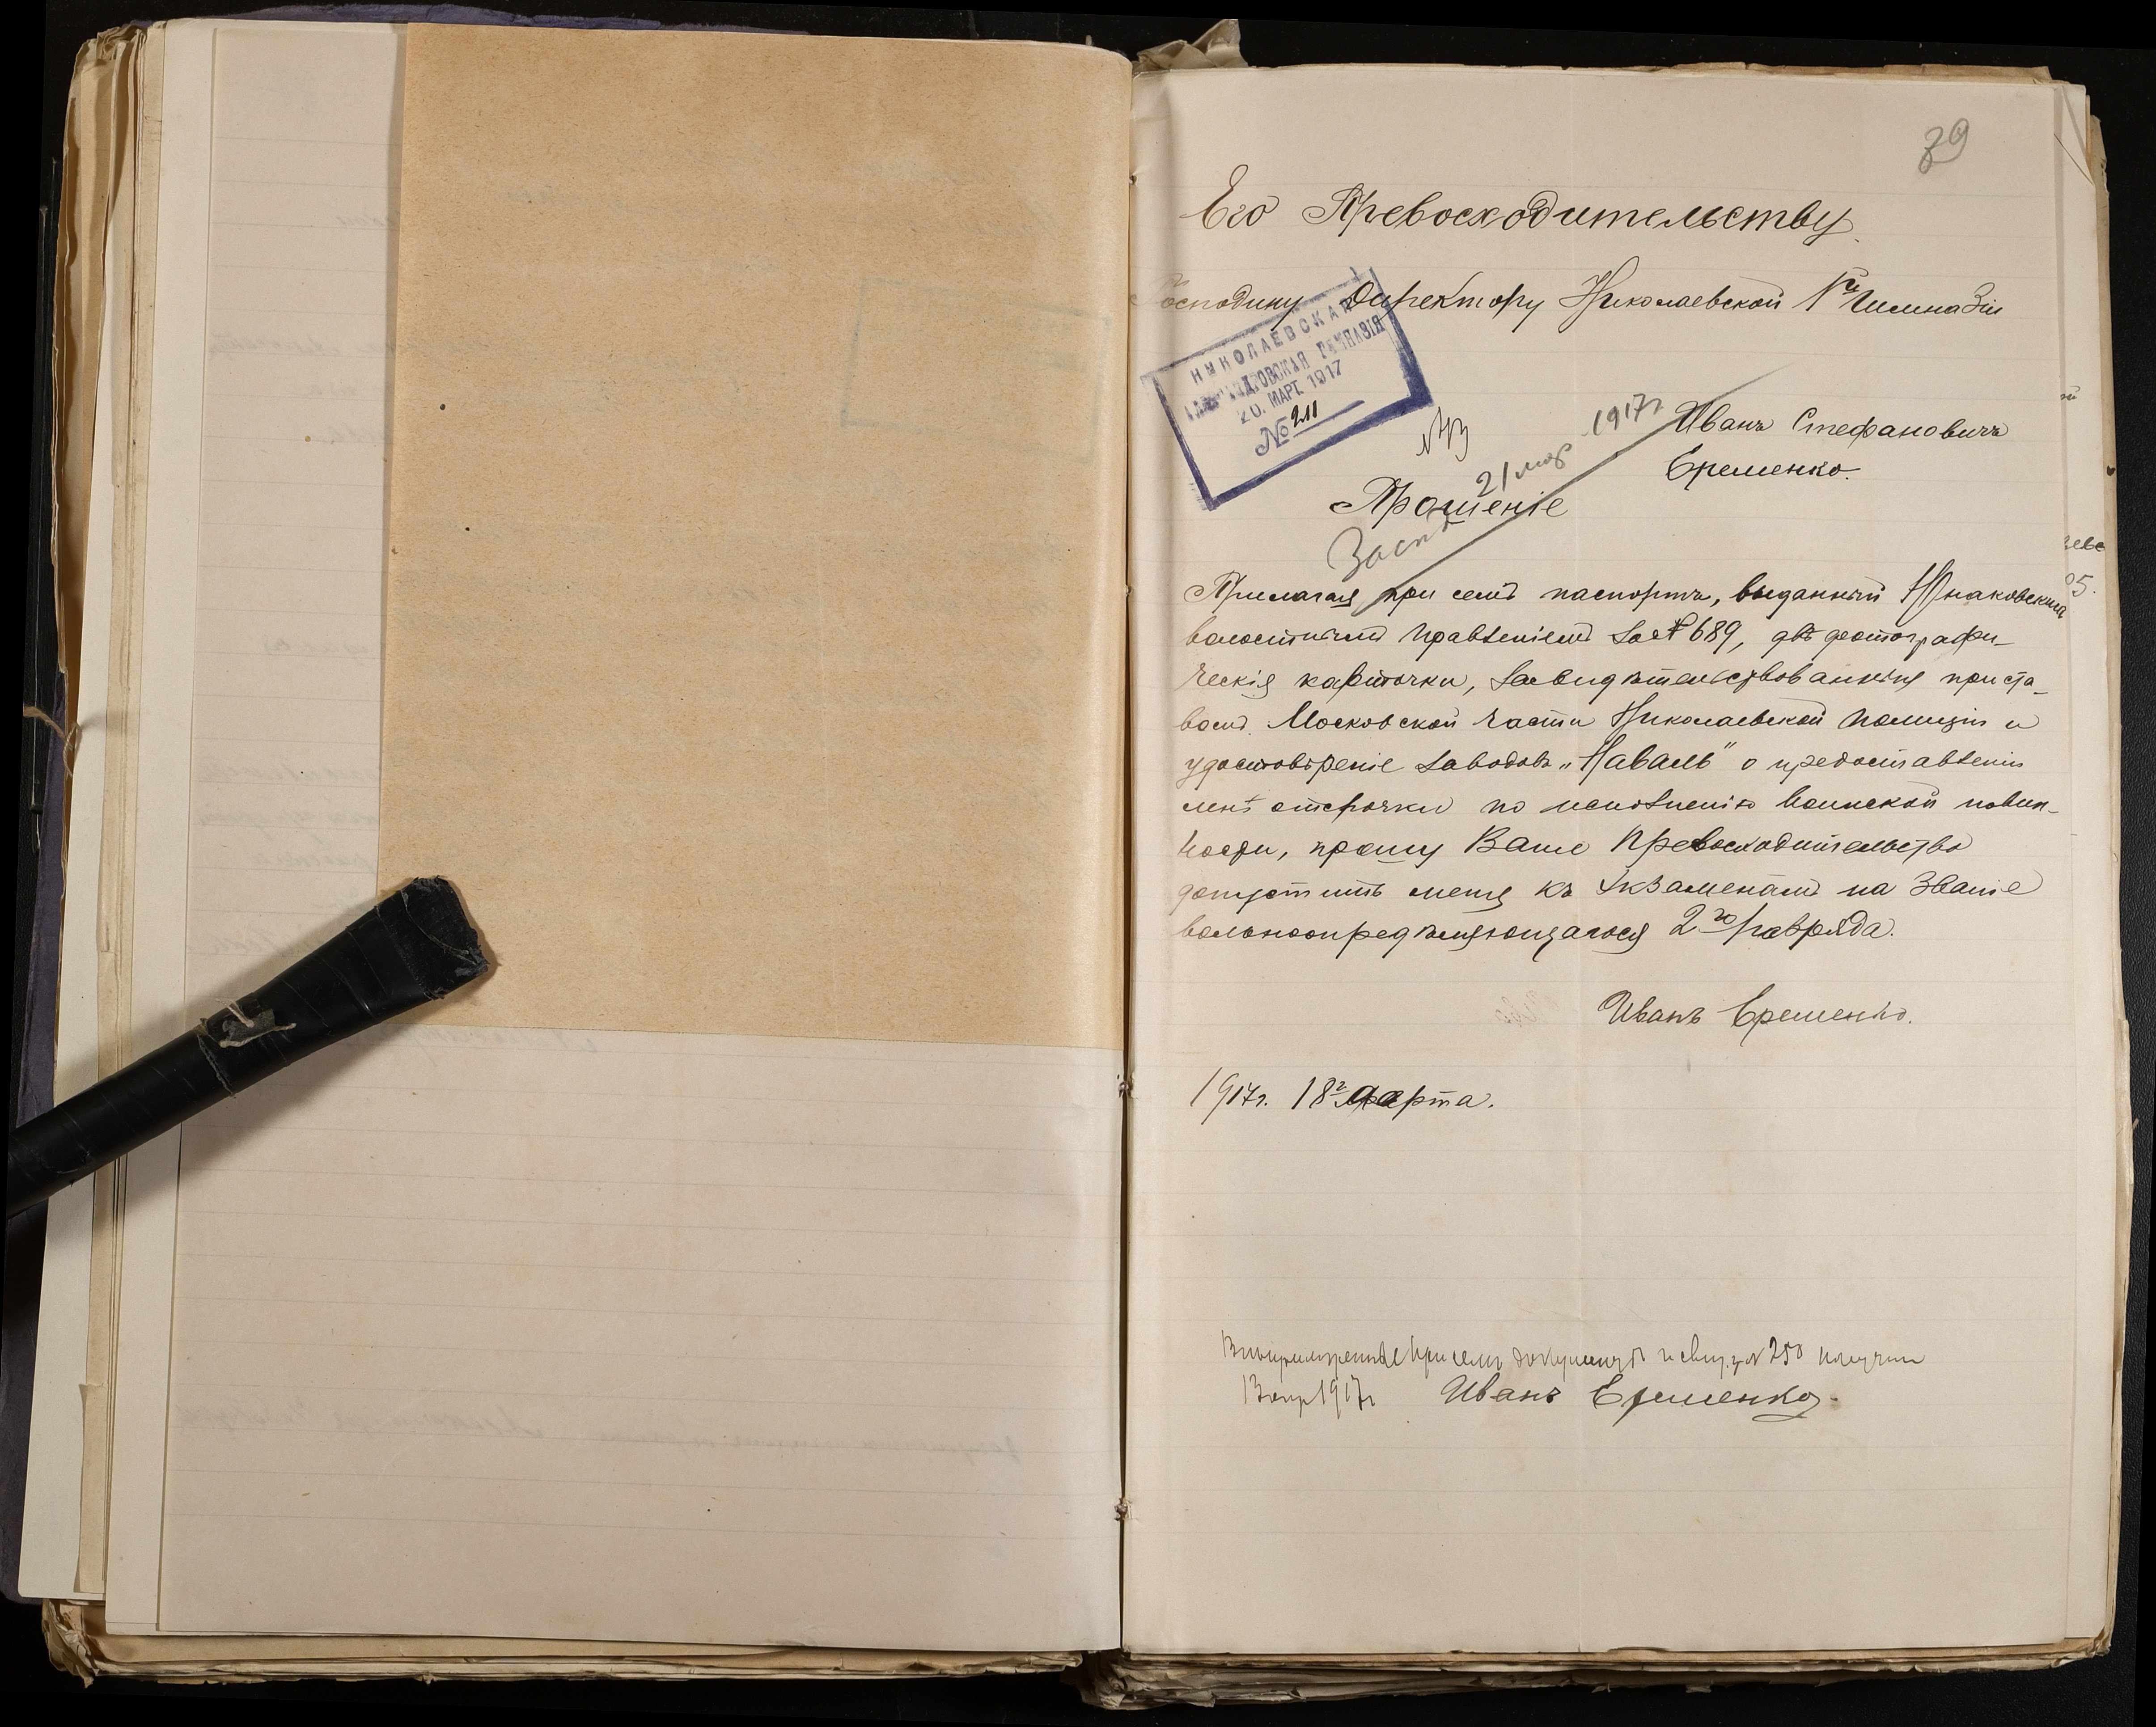 39
Его Превосходительству
Господину Директору Николаевской 1й Гимназіи
НИКОЛАЕВСКАЯ
АЛЕКСАНДРОВСКАЯ ГИМНАЗІЯ
20. МАРТ. 1917
№ 211
21 мар 1917г.
Иванъ Стефановичъ
Еременко.
Прошеніе
Прилагая при семъ паспортъ, выданный Юнаковскимъ
волостнымъ правленіемъ за № 689, двѣ фотографи-
ческія карточки, завидѣтельствованныя приста-
вомъ Московской части Николаевской полиціи и
удостовѣреніе заводовъ „Наваль" о предоставленіи
мнѣ отсрочки по исполненію воинской повин-
ности, прошу Ваше Превосходительство
допустить меня къ экзаменамъ на званіе
вольноопредѣляющагося 2го разряда.
Иванъ Еременко.
1917г. 18г марта.
при семъ документы и свид. № 250 получил
13 апр 1917г Иванъ Еременко.